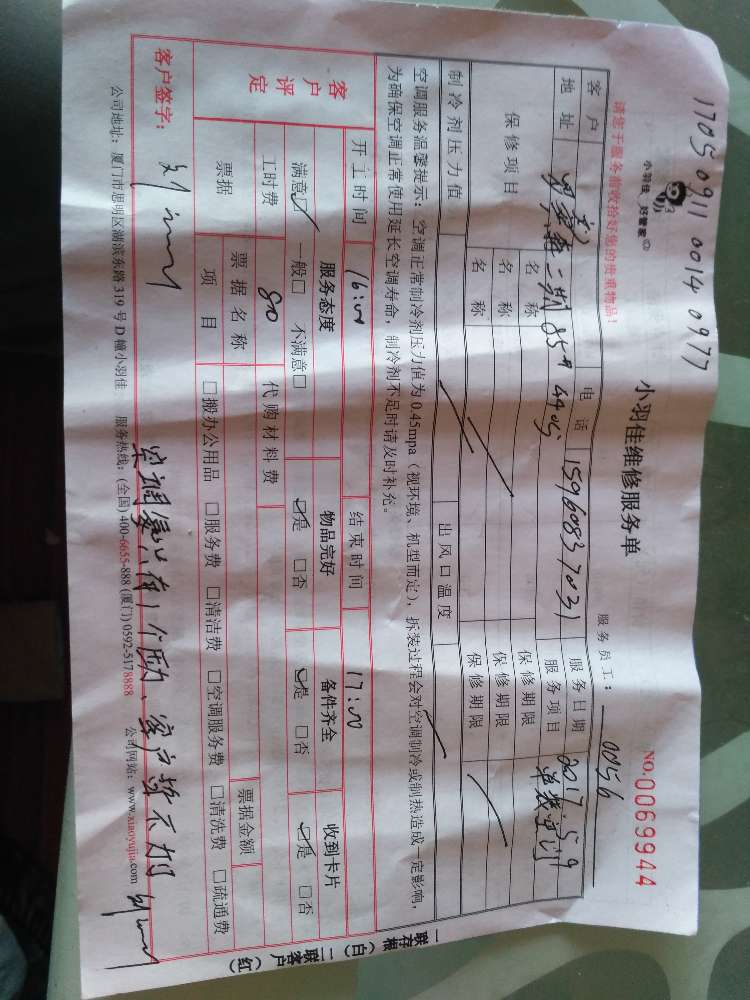 1705 0911 0014 0977
小羽佳 好管家
小羽佳维修服务单
NO.0069944
请您于服务前收拾好您的贵重物品!
服务员工: 0056
客户 电话 15960837031 服务日期 2017.5.9
地址 二期 85# 4405 服务项目
保修项目 名称 保修期限
名称 保修期限
名称 保修期限
制冷剂压力值 出风口温度
空调服务温馨提示: 空调正常制冷剂压力值为0.45mpa (视环境、机型而定), 拆装过程会对空调制冷或制热造成一定影响,
为确保空调正常使用延长空调寿命, 制冷剂不足时请及时补充。
开工时间 16:00 结束时间 17:00
客户评定 服务态度 物品完好 备件齐全 收到卡片
满意☑ 一般□ 不满意□ ☑是 □否 ☑是 □否 ☑是 □否
工时费 80 代购材料费
票据 票据名称 票据金额
项目 □搬办公用品 □服务费 □清洁费 □空调服务费 □清洗费 □疏通费
客户签字:
空调 客户暂不加
公司地址: 厦门市思明区湖滨东路319号D幢小羽佳 服务热线: (全国) 400-6655-888 (厦门) 0592-5178888 公司网站: www.xiaoyujia.com
一联存根(白) 二联客户(红)